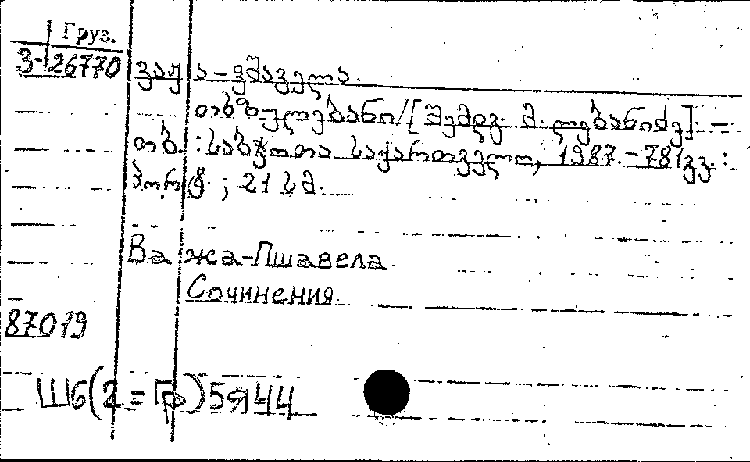 Груз.
3-26770
ვაჟა-ფშაველა.
თხზულებანი/[შემდგ. მ. ლებანიძე] –
თბ. : საბჭოთა საქართველო, 1987. – 781გვ. :
პორტ. ; 21 სმ.
Важа-Пшавела
Сочинения.
87019
Ш6(2=Гр)5я44